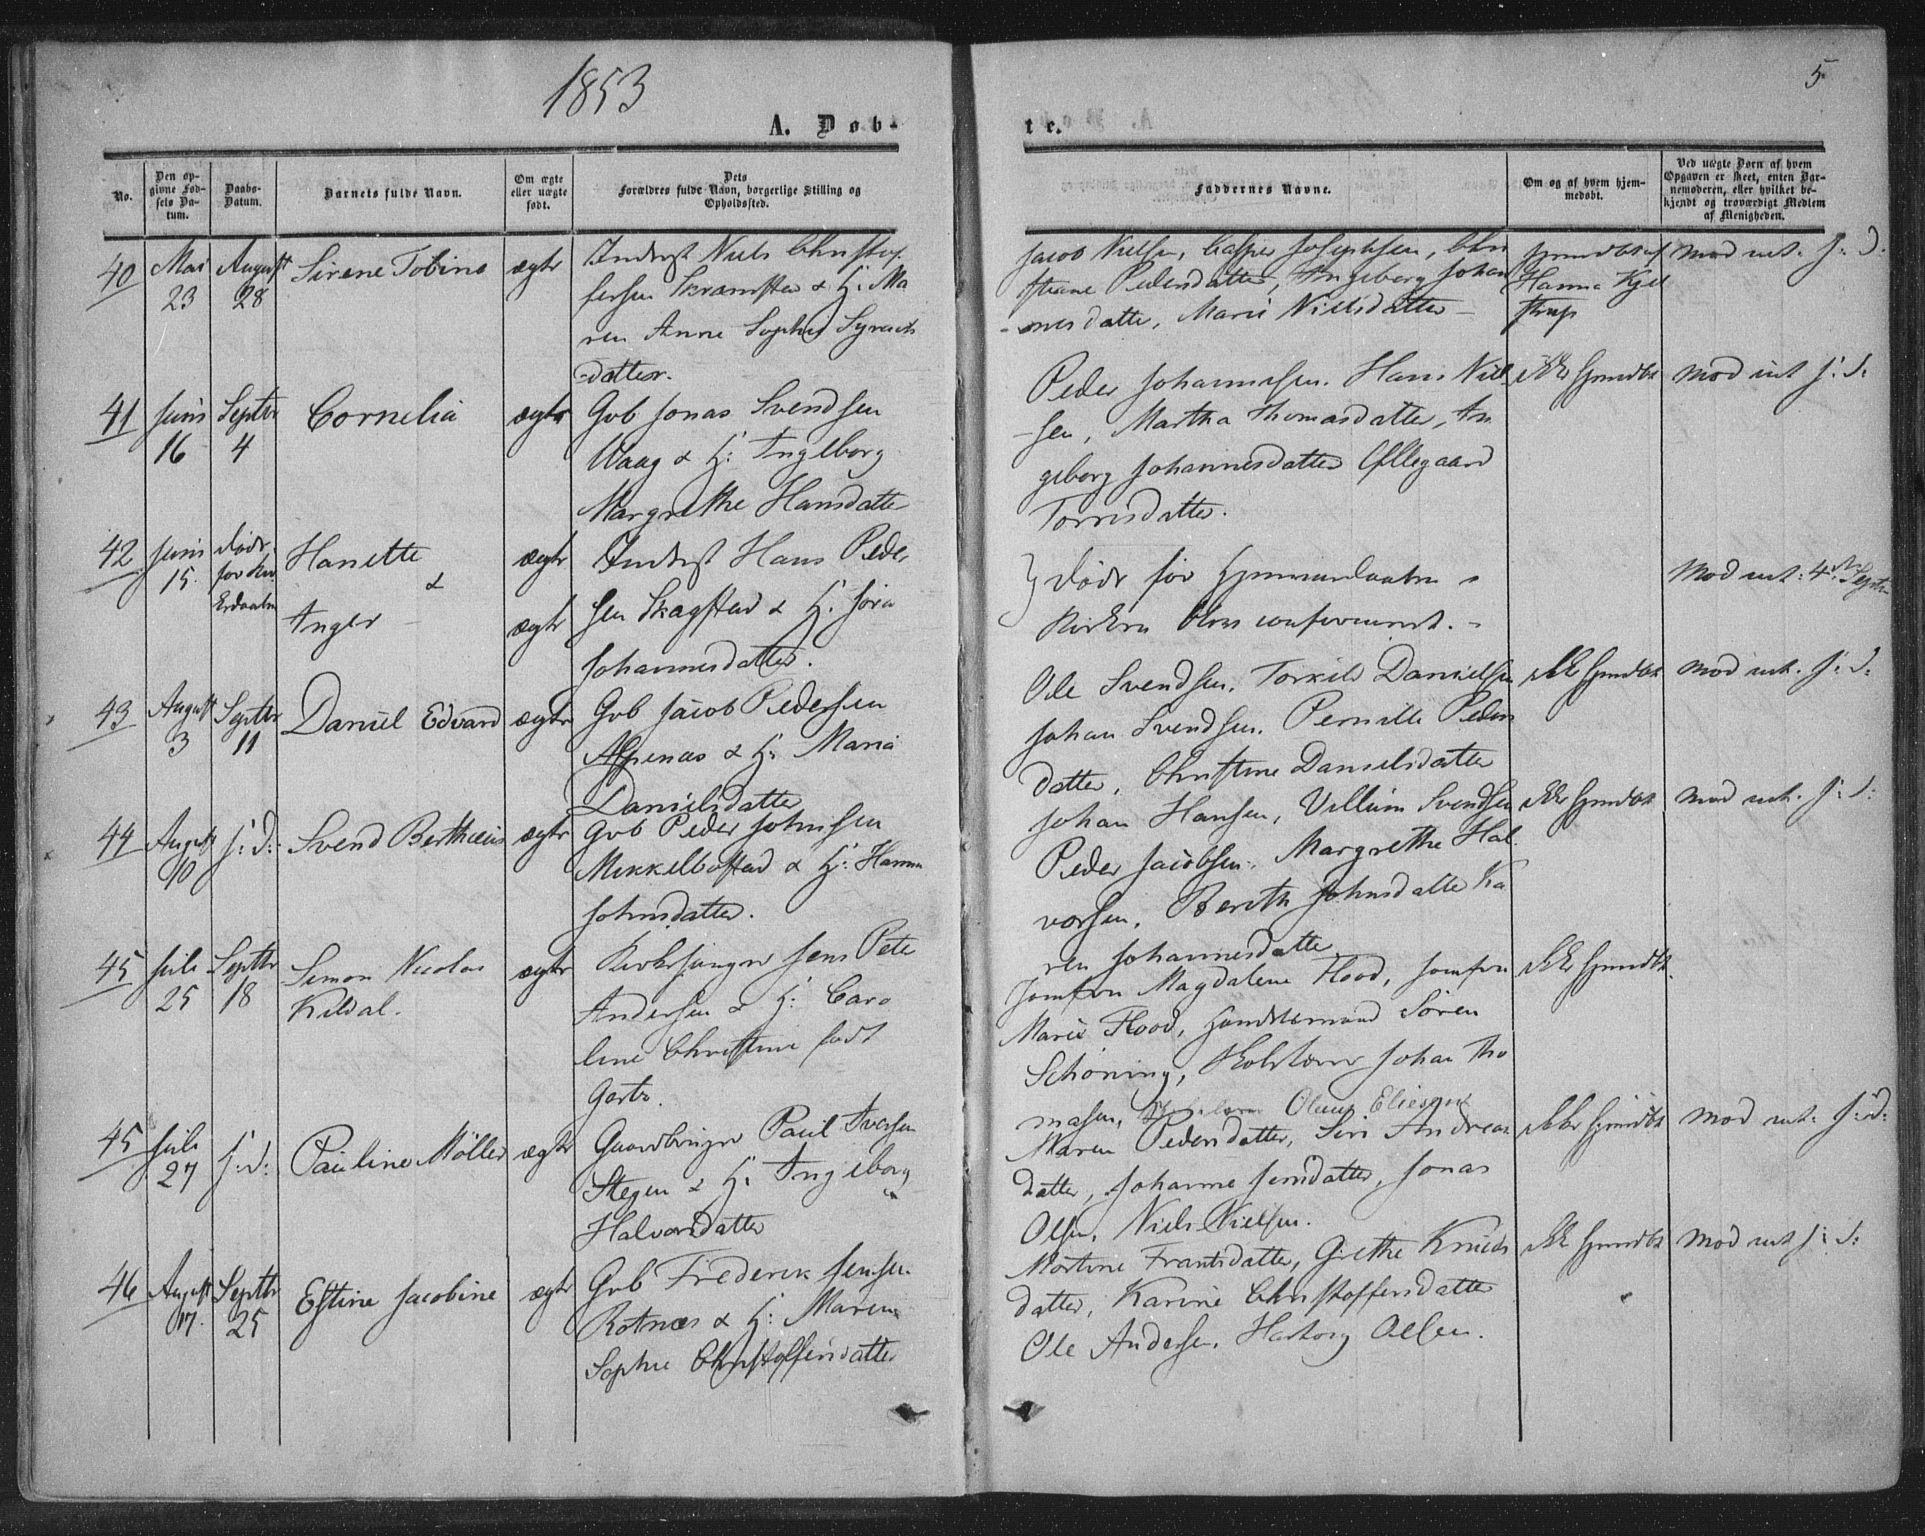 1853
5
A. Døb-
te.
No.
Den op-
givne Fød-
sels Da-
tum.
Daabs-
Datum.
Barnets fulde Navn.
Om ægte
eller uægte
født.
Dets
Forældres fulde Navn, borgerlige Stilling og
Opholdssted.
Faddernes Navne.
Om og af hvem hjem-
medøbt.
Ved uægte Børn af hvem
Opgaven er skeet, enten Bar-
nemoderen, eller hvilket be-
kjendt og troværdigt Medlem
af Menigheden.
40
Mai
23
August
28
Sirene Tobine
ægte
Inderst Niels Christof
fersen & H: Ma
ren Anne Sophie
datter.
Jacob Nielsen, Casper Josephsen, Chri
stiane Pedersdatter, Ingeborg Johan
nesdatter, Marie Nielsdatter
Hjemdøbt af
Hanna Kjel
strup
mod. int. s: d.
41
Juni
16
Septbr
4
Cornelia
ægte
Gbr Jonas Svendsen
Waag & H: Ingeborg
Margrethe Hansdatter
Peder Johannesen. Hans Niel
sen, Martha Thomasdatter, In
geborg Johannesdatter Ellegaard
Torrisdatter.
ikke hjemdøbt
mod int s: d:
42
Juni
15.
døde
før
Hanette
&
Inger
ægte
ægte
Inderst Hans Peder
sen Skagstad & H:
Johannesdatter.
døde før Hjemmedaaben i
Kirken blev confirmeret.
mod int: 4de Septbr
43
August
3
Septbr
11
Daniel Edvard
ægte
Gbr Jacob Pedersen
Alpenæs & H: Maria
Danielsdatter
Ole Svendsen. Torkild Danielsen
Johan Svendsen. Pernille Peders
datter, Christine Danielsdatter
ikke hjemdøbt
mod int. s: d:
44
August
10
s: d:
Svend Berthæus
ægte
Gbr Peder Johnsen
Mikkelbostad & H: Hanna
Johnsdatter.
Johan Hansen, Villum Svendsen
Peder Jacobsen. Margrethe Hal
vorsen. Bereth Johnsdatter Ka
ren Johannesdatter
ikke hjemdøbt
mod int. s: d:
45
Juli
25
Septbr
18
Simon Nicolai
Kildal.
ægte
Kirkesanger Jens Peter
Andersen & H: Caro
line Christine født
Jomfru Magdalene Flood, Jomfru
Marie Flood, Handelsmand Sören
Schöning, Skolelærer Johan Tho
masen, Olaus Eliesen
ikke hjemdøbt.
45
Juli
27
s: d:
Pauline Möller
ægte
Gaardbruger Paul Iversen
Stegen & H: Ingeborg
Halvorsdatter
Maren Pedersdatter, Siri Andreas
datter, Johanne Jensdatter, Jonas
Olsen, Niels Nielsen.
ikke hjemdøbt
mod int: s: d:
46
August
17.
Septbr
25
Estine Jacobine
ægte
Gbr Frederik Jensen
Rotnæs & H: Maren
Sophie Christoffersdatter
Martine Frantsdatter, Grethe Knuds
datter, Karine Christoffersdatter
Ole Andersen, Hartvig Olsen.
ikke hjemdøbt
mod int s: d: